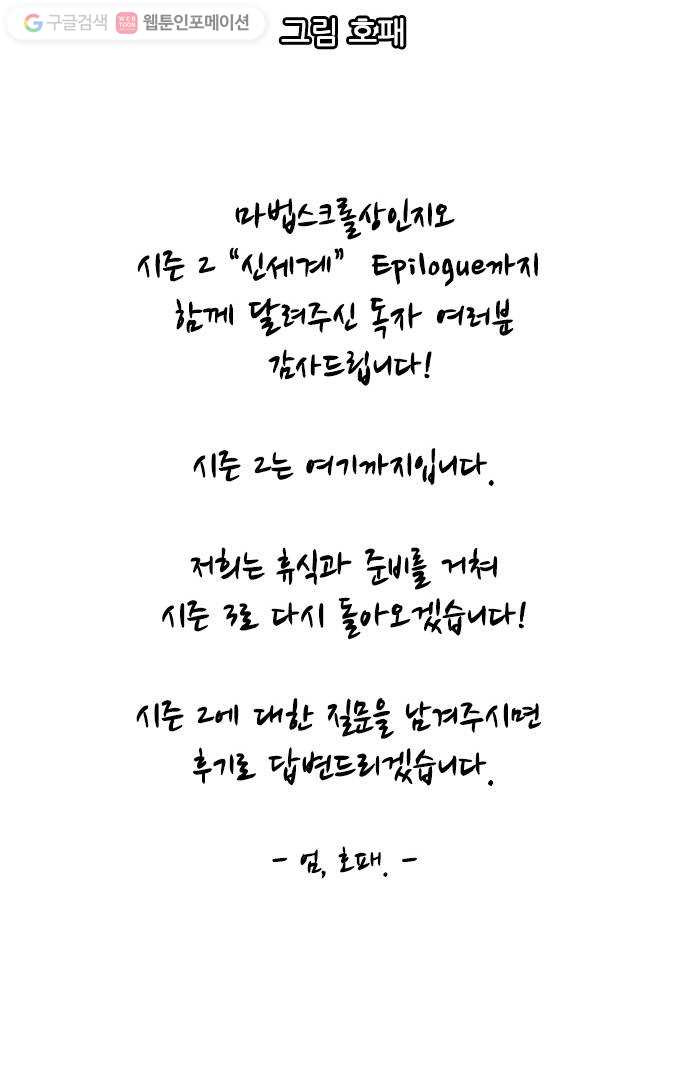 구글검색 WEB TOON 웹툰인포메이션
그림 호패
마법스크롤상인지오
시즌 2 “신세계” Epilogue까지
함께 달려주신 독자 여러분
감사드립니다!
시즌 2는 여기까지입니다.
저희는 휴식과 준비를 거쳐
시즌 3로 다시 돌아오겠습니다!
시즌 2에 대한 질문을 남겨주시면
후기로 답변드리겠습니다.
- 엄, 호패. -